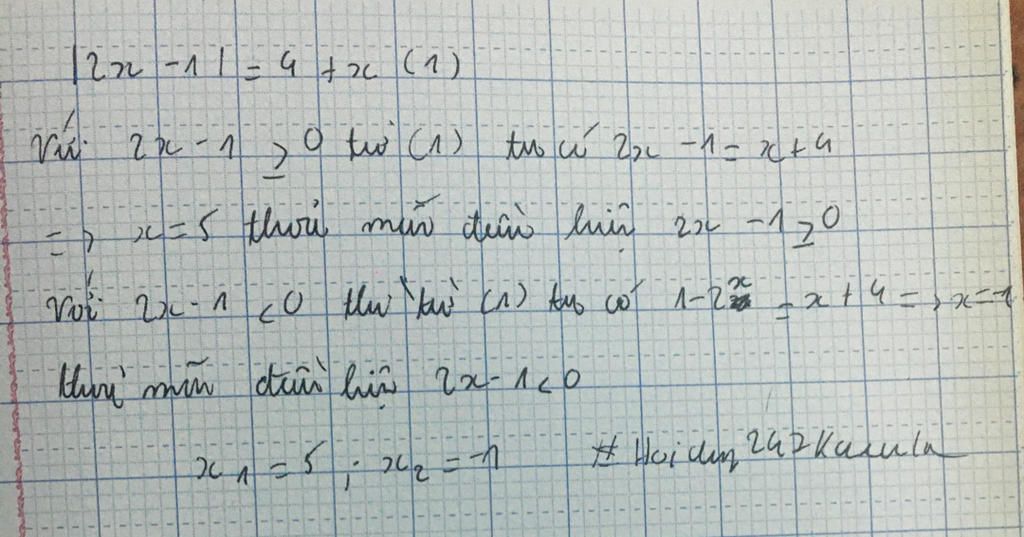 |2x - 1| = 4 + x (1)
Với 2x - 1 ≥ 0 từ (1) ta có 2x - 1 = x + 4
=> x = 5 thoả mãn điều kiện 2x - 1 ≥ 0
Với 2x - 1 < 0 thì từ (1) ta có 1 - 2x = x + 4 => x = -1
thoả mãn điều kiện 2x - 1 < 0
x₁ = 5 ; x₂ = -1 # Hoidap247